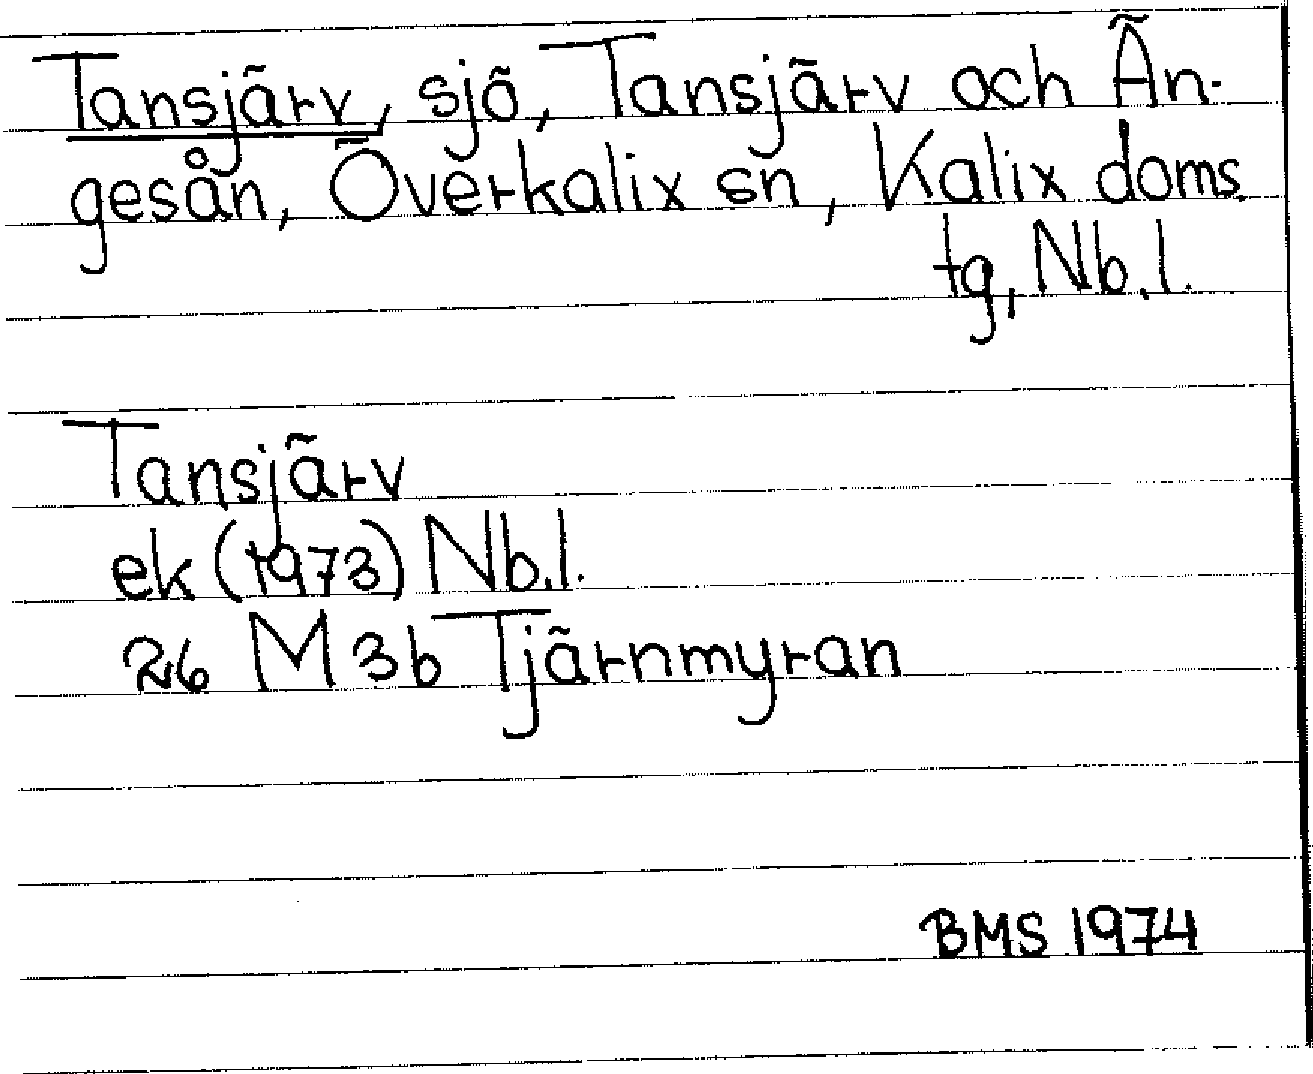 Tansjärv, sjö, Tansjärv och Än-
gesån, Överkalix sn, Kalix doms.
tg, Nb.l.
Tansjärv
ek (1973) Nb.l.
26 M 3b Tjärnmyran
BMS 1974